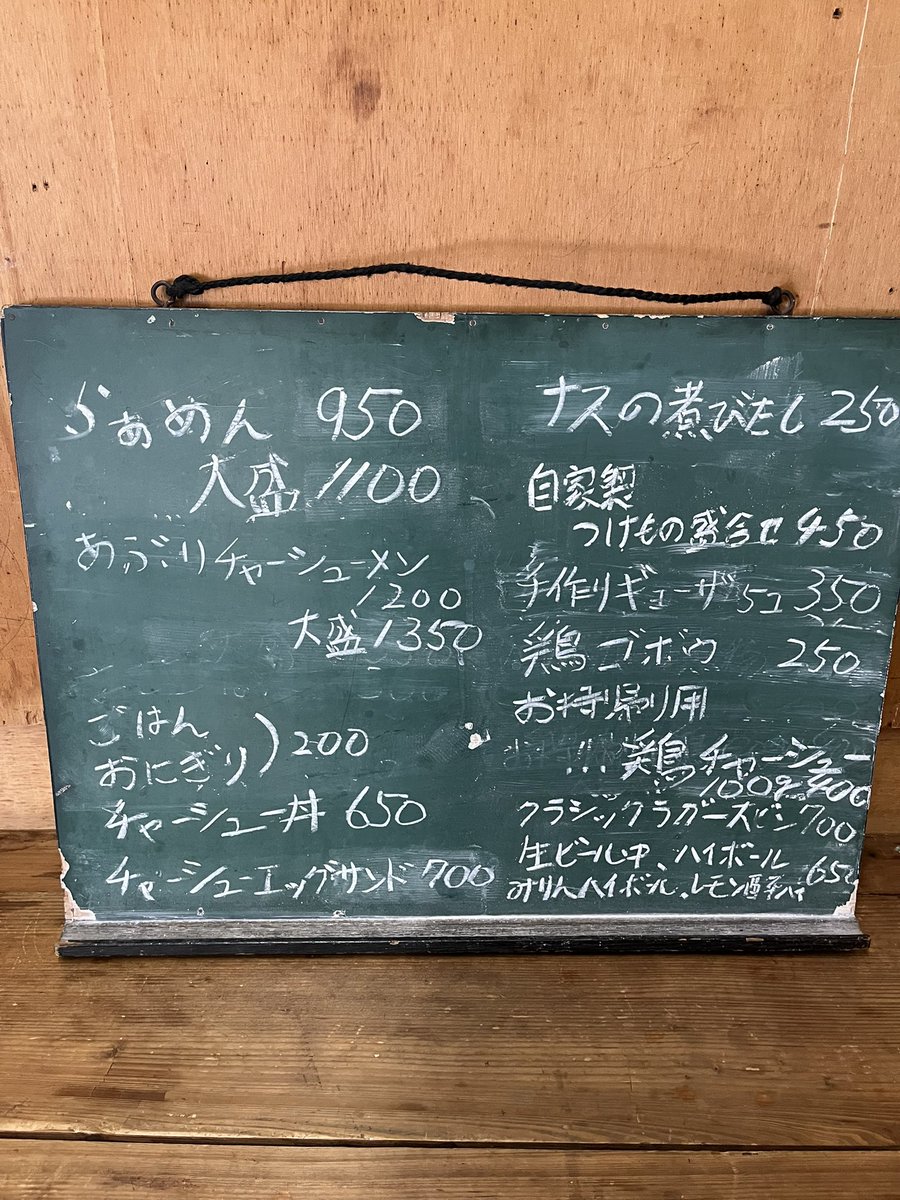 らぁめん 950
大盛 1100
あぶりチャーシューメン
1200
大盛 1350
ごはん
おにぎり) 200
チャーシュー丼 650
チャーシューエッグサンド 700
ナスの煮びたし 250
自家製
つけもの盛合せ 450
手作りギョーザ 5コ 350
鶏ゴボウ 250
お持帰り用
... 鶏チャーシュー
100g 400
クラシックラガーズビン 700
生ビール中、ハイボール
みりんハイボール、レモン酎ハイ 650